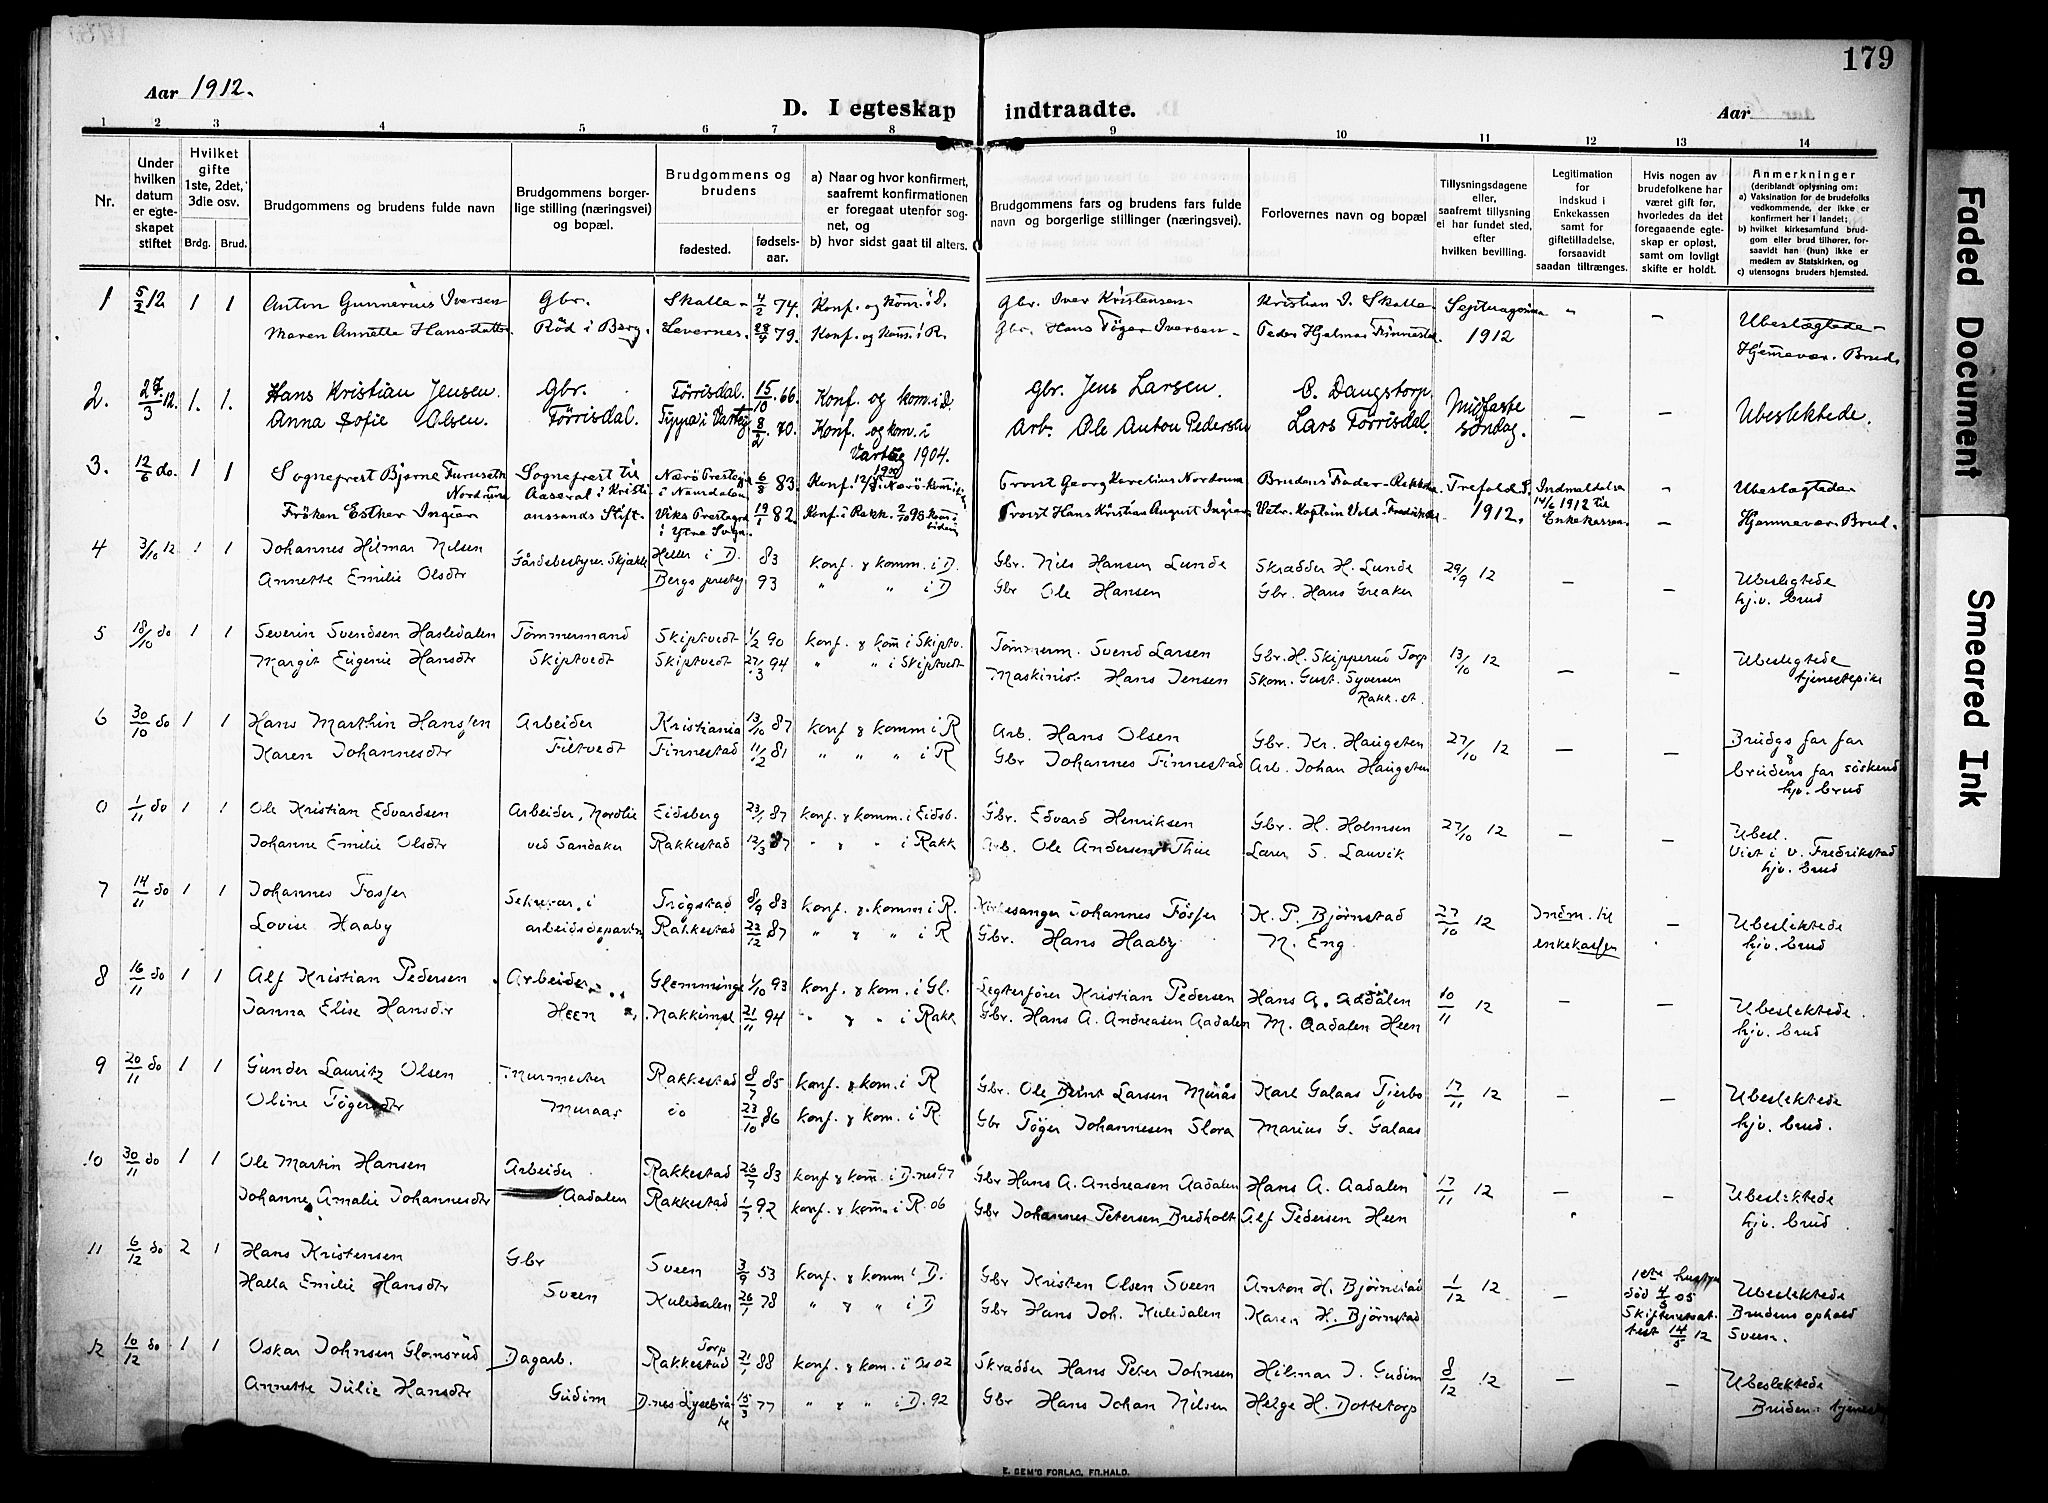 179
Aar 1912.
D. I egteskap indtraadte.
Aar
1 2 3 4 5 6 7 8 9 10 11 12 13 14
Nr.
Under hvilken datum er egteskapet stiftet
Hvilket gifte 1ste, 2det, 3die osv.
Brdg. Brud.
Brudgommens og brudens fulde navn
Brudgommens borgerlige stilling (næringsvei) og bopæl.
Brudgommens og brudens
fødested. fødselsaar.
a) Naar og hvor konfirmert, saafremt konfirmationen er foregaat utenfor sognet, og
b) hvor sidst gaat til alters.
Brudgommens fars og brudens fars fulde navn og borgerlige stillinger (næringsvei).
Forlovernes navn og bopæl
Tillysningsdagene eller, saafremt tillysning ei har fundet sted, efter hvilken bevilling.
Legitimation for indskud i Enkekassen samt for giftetilladelse, forsaavidt saadan tiltrænges.
Hvis nogen av brudefolkene har været gift før, hvorledes da det foregaaende egteskap er opløst, samt om lovligt skifte er holdt.
Anmerkninger
(deriblandt oplysning om:
a) Vaksination for de brudefolks vedkommende, der ikke er konfirmert her i landet;
b) hvilket kirkesamfund brudgom eller brud tilhører, forsaavidt han (hun) ikke er medlem av Statskirken, og
c) utensogns bruders hjemsted.
1 5/2 12 1 1 Anton Gunnerius Iversen Gbr. Skatla 4/2 74. Konf. og kom. i D. Gbr. Iver Kristensen Kristian I. Skatla Septuagesima " —
Maren Annette Hansdatter Röd i Berg. Levernes. 28/4 79. Konf. og Kom. i R. Gbr. Hans Töger Iversen Peder Hjalmar Finnestad. 1912 Ubeslægtede Hjemmevær. Brud.
2. 27/3 12. 1. 1. Hans Kristian Jensen. Gbr. Törrisdal. 15/10 66. Konf. og kom. i D. Gbr. Jens Larsen. O. Daugstorp. Midfaste — —
Anna Sofie Olsen. Törrisdal. Typpa i Varteig 8/2 70. Konf. og kom. i Varteig 1904. Arb. Ole Anton Pedersen Lars Törrisdal. söndag. Ubeslektede.
3. 12/6 do. 1 1 Sogneprest Bjarne Furuseth Nordrum Sogneprest til Aaseral i Kristiansands Stift. Nærö Prestegj. i Namdalen 6/8 83. Konf. i Nærö Provst Georg Karelius Nordrum Brudens Fader Trefold. S. 1912. Indmeldelse 14/6 1912 til Enkekassen. —
Fröken Esther Ingier Viks Prestegj. i Ytre Sogn. 19/1 82. Konf. i Rakk. 2/10 98 Provst Hans Kristian August Ingier Ubeslægtede Hjemmevær. Brud.
4 3/10 12 1 1 Johannes Hilmar Nilsen Gårdsbestyrer Skjækle Heller i D. 83 konf. & komm. i D. Gbr. Nils Hansen Lunde Skrædder H. Lunde 29/9 12 — —
Annette Emilie Olsdtr Bergs prestegj 93 " " i D Gbr Ole Hansen Gbr. Hans Greaker Ubeslegtede hj.v. brud
5 18/10 do 1 1 Severin Svendsen Hasledalen Tömmermand Skiptvedt 1/2 90 konf. & kom i Skiptv. Tömmerm. Svend Larsen Gbr. H. Skipperud Torp 13/10 12 — —
Margit Eugenie Hansdtr Skiptvedt Skiptvedt 27/3 94 " " i Skiptvedt Maskinist Hans Jensen Skom. Gust. Syversen Rakk. st. Ubeslegtede tjenestepike
6 30/10 do 1 1 Hans Marthin Hansen Arbeider Kristiania 13/10 87 konf & komm i R Arb. Hans Olsen Gbr. Kr. Haugsten 27/10 12 — —
Karen Johannesdtr Filtvedt Finnestad 11/2 81 " " " i R Gbr Johannes Finnestad Arb. Johan Haugsten Brudgs far far & brudens far söskend hjv. brud
0 1/11 do 1 1 Ole Kristian Edvardsen Arbeider, Nordlie Eidsberg 23/1 87 konf. & komm. i Eidsb. Gbr. Edvard Henriksen Gbr. H. Holmsen 27/10 12 — —
Johanne Emilie Olsdtr ved Sandaker Rakkestad 12/3 87 " & " i Rakk Arb. Ole Andersen Thue Lærer S. Lauvik Ubesl. Viet i v. Fredrikstad hjv. brud
7 14/11 do 1 1 Johannes Fosser Sekretær i Trögstad 8/9 83 konf. & komm i R. Kirkesanger Johannes Fösser K. P. Björnstad 27/10 12 Indm. til enkekassen —
Lovise Haaby arbeidsdepartm Rakkestad 22/12 87 " & " i R Gbr. Hans Haaby N. Eng Ubeslektede hjv. brud
8 16/11 do 1 1 Alf Kristian Pedersen Arbeider Glemminge 1/10 93 konf. & kom. i Gl. Kristian Pedersen Hans A. Aadalen 10/11 12 — —
Janna Elise Hansdtr Heen Nakkimel 21/11 94 " & " i Rakk Gbr. Hans A. Andreasen Aadalen M. Aadalen Heen Ubeslektede. hjv. brud
9 20/11 do 1 1 Gunder Lauritz Olsen Murmester Rakkestad 8/7 85 konf. & kom. i R Gbr. Ole Bernt Larsen Murås Karl Galaas Tjerbo 17/11 12 — —
Oline Tögersdtr Muraas do 23/10 86 konf. & kom. i R. Gbr Töger Johannesen Slora Marius G. Galaas Ubeslektede hjv. brud.
10 30/11 do 1 1 Ole Martin Hansen Arbeider Rakkestad 26/7 83 konf & kom. i D.nes 97 Gbr Hans A. Andreasen Aadalen Hans A. Aadalen 17/11 12 — —
Johanne Amalie Johannesdtr Aadalen Rakkestad 1/7 92 konf. & kom. i R. 06 Gbr Johannes Petersen Bredholt Alf Pedersen Heen Ubeslektede hjv. brud.
11 6/12 do 2 1 Hans Kristensen Gbr Sveen 3/9 53 konf. & komm i D. Gbr Kristen Olsen Sveen Anton H. Björnstad 1/12 12 — 1ste hustru död 4/3 05 Skifteretsattest 14/5 12
Halla Emilie Hansdtr Sveen Kuledalen 26/1 78 " & " i D Gbr Hans Joh. Kuledalen Karen H. Björnstad Ubeslektede Brudens ophold Sveen.
12 10/12 do 1 1 Oskar Johnsen Glonsrud Dagarb. Torp Rakkestad 21/1 88 konf. & kom. i Os 02 Skrædder Hans Peter Johnsen Hilmar J. Gudim 8/12 12 — —
Annette Julie Hansdtr Gudim D.nes Lysebråte 15/3 77 " & " i D. 92 Gbr Hans Johan Nilsen Helge H. Dottetorp Ubeslektede Bruden
E. SEM'S FORLAG, FR.HALD.
Faded Document
Smeared Ink